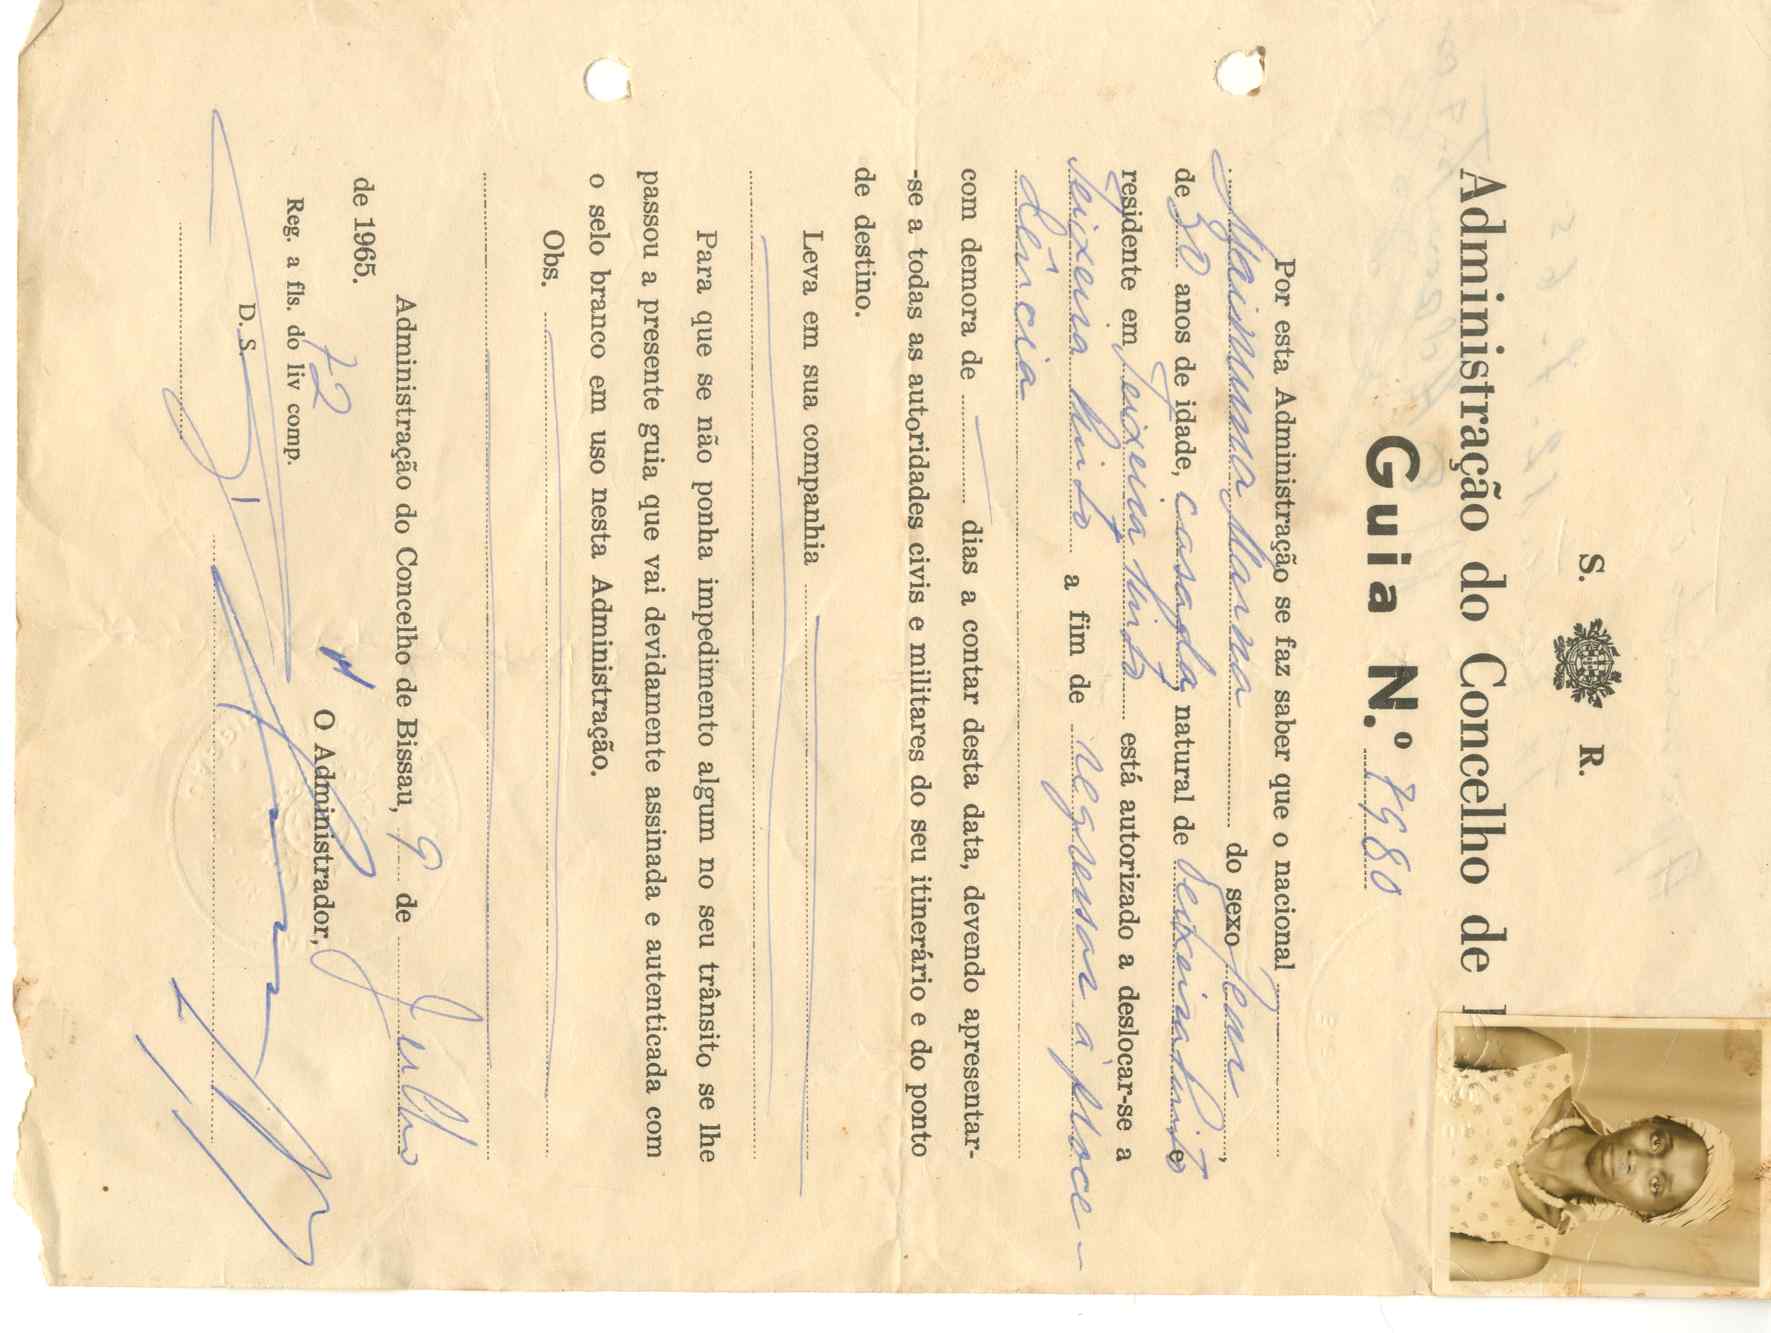 S. R.
Administração do Concelho de
Guia N.º 7980
Por esta Administração se faz saber que o nacional
Maimuna Marna do sexo Fem,
de 30 anos de idade, casada, natural de Teixeira Pinto e
residente em Teixeira Pinto está autorizado a deslocar-se a
Teixeira Pinto a fim de regressar à proce-
dência
com demora de dias a contar desta data, devendo apresentar-
-se a todas as autoridades civis e militares do seu itinerário e do ponto
de destino.
Leva em sua companhia
Para que se não ponha impedimento algum no seu trânsito se lhe
passou a presente guia que vai devidamente assinada e autenticada com
o selo branco em uso nesta Administração.
Obs.
Administração do Concelho de Bissau, 9 de Julho
de 1965.
72
O Administrador,
Reg. a fls. do liv comp.
D. S.